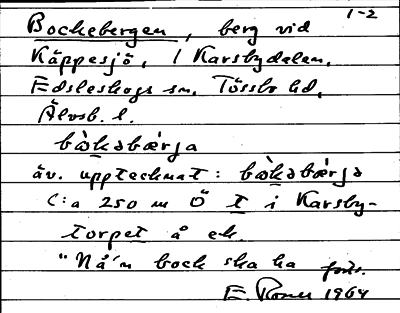 1-2
Bockebergen, berg vid
Käppesjö, i Karsbydalen,
Edsleskogs sn. Tössbo hd,
Älvsb. l.
bὰkəbærja
äv. upptecknat: bὰkəbærjə
C:a 250 m Ö t i Karsby-
torpet å ek.
"Nå'n bock ska ha
E. 1964